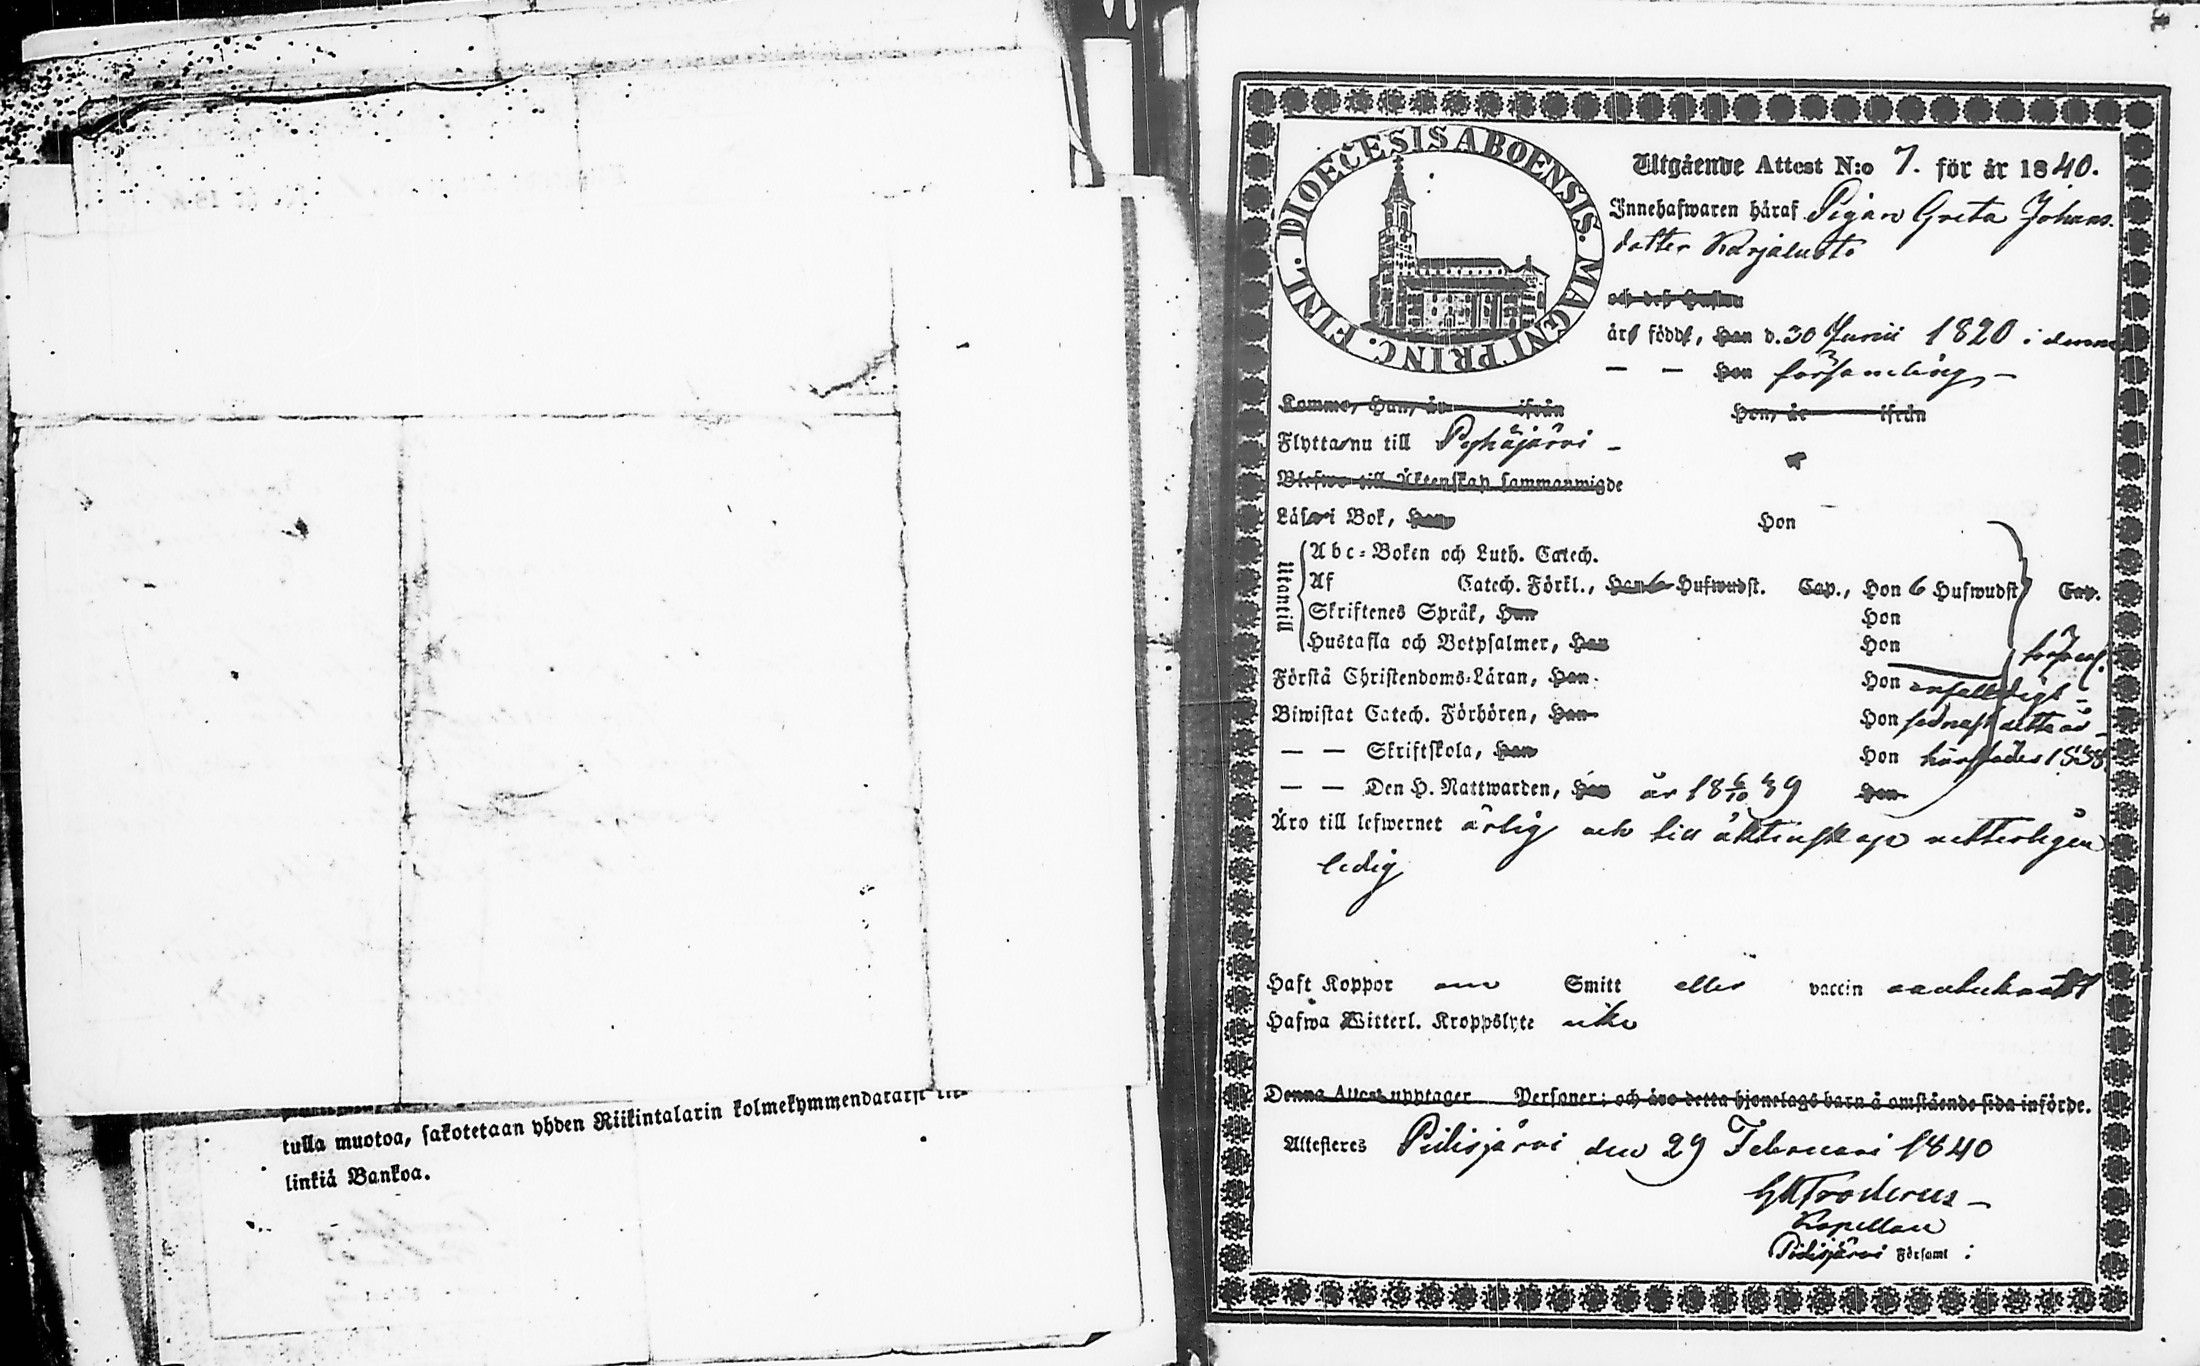 tulla muotoa, sakotetaan yhden Riikintalarin kolmekymmendararsi
linkiä Bankoa.
DIOECESIS ABOENSIS. MAGNI PRINC. FINL.
Utgående Attest N:o 7. för år 1840.
Innehafwaren häraf Pigan Greta Johans-
dotter Karjaluoto
och dess Hustru
äro födde, Han d. 30 Junii 1820 i denna
— — Hon församling —
Komme, Han, år ifrån Hon, år ifrån
Flytta nu till Pyhäjärvi —
Blefwo till Äktenskap sammanwigde
Läsa i Bok, Han Hon
Utantill
Abc-Boken och Luth. Catech.
Af Catech. Förkl., Han 6 Hufwudst. Cap., Hon 6 Hufwudst. Cap.
Skriftenes Språk, Han Hon
Hustafla och Botpsalmer, Han Hon
Förstå Christendoms-Läran, Han Hon enfalldigt —
Biwistat Catech. Förhören, Han Hon sednast detta år
— — Skriftskola, Han Hon 1838.
— — Den H. Nattwarden, Han år 18 6/10 39 Hon
Äro till lefwernet ärlig och till äktenskap vetterligen
ledig
Haft Koppor om Smitt eller vaccin obekant
Hafwa Witterl. Kroppslyte icke
Denna Attest upptager Personer; och äro detta hjonelags barn å omstående sida införde.
Attesteres Pidisjärvi den 29 Februari 1840
Kapellan
Pidisjärvi Församl: